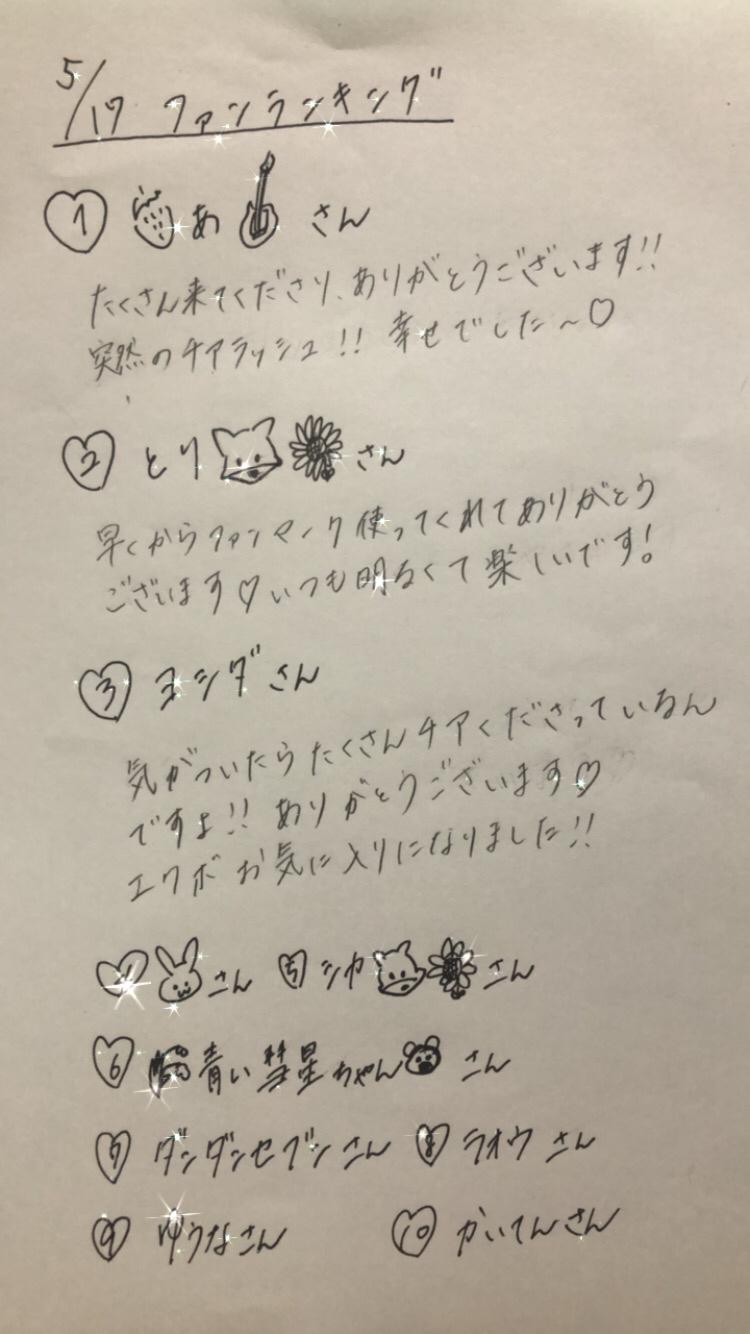 5/17 ファンランキング
1 あ さん
たくさん来てくださり、ありがとうございます!!
突然のチアラッシュ!! 幸せでした〜♡
2 とり さん
早くからファンマーク使ってくれてありがとう
ございます♡いつも明るくて楽しいです!
3 ヨシダさん
気がついたらたくさんチアくださっているん
ですよ!! ありがとうございます♡
エクボお気に入りになりました!!
4 さん 5 シカ さん
6 青い彗星ちゃん さん
7 ダンダンセブンさん 8 ラオウさん
9 ゆうなさん 10 かいてんさん